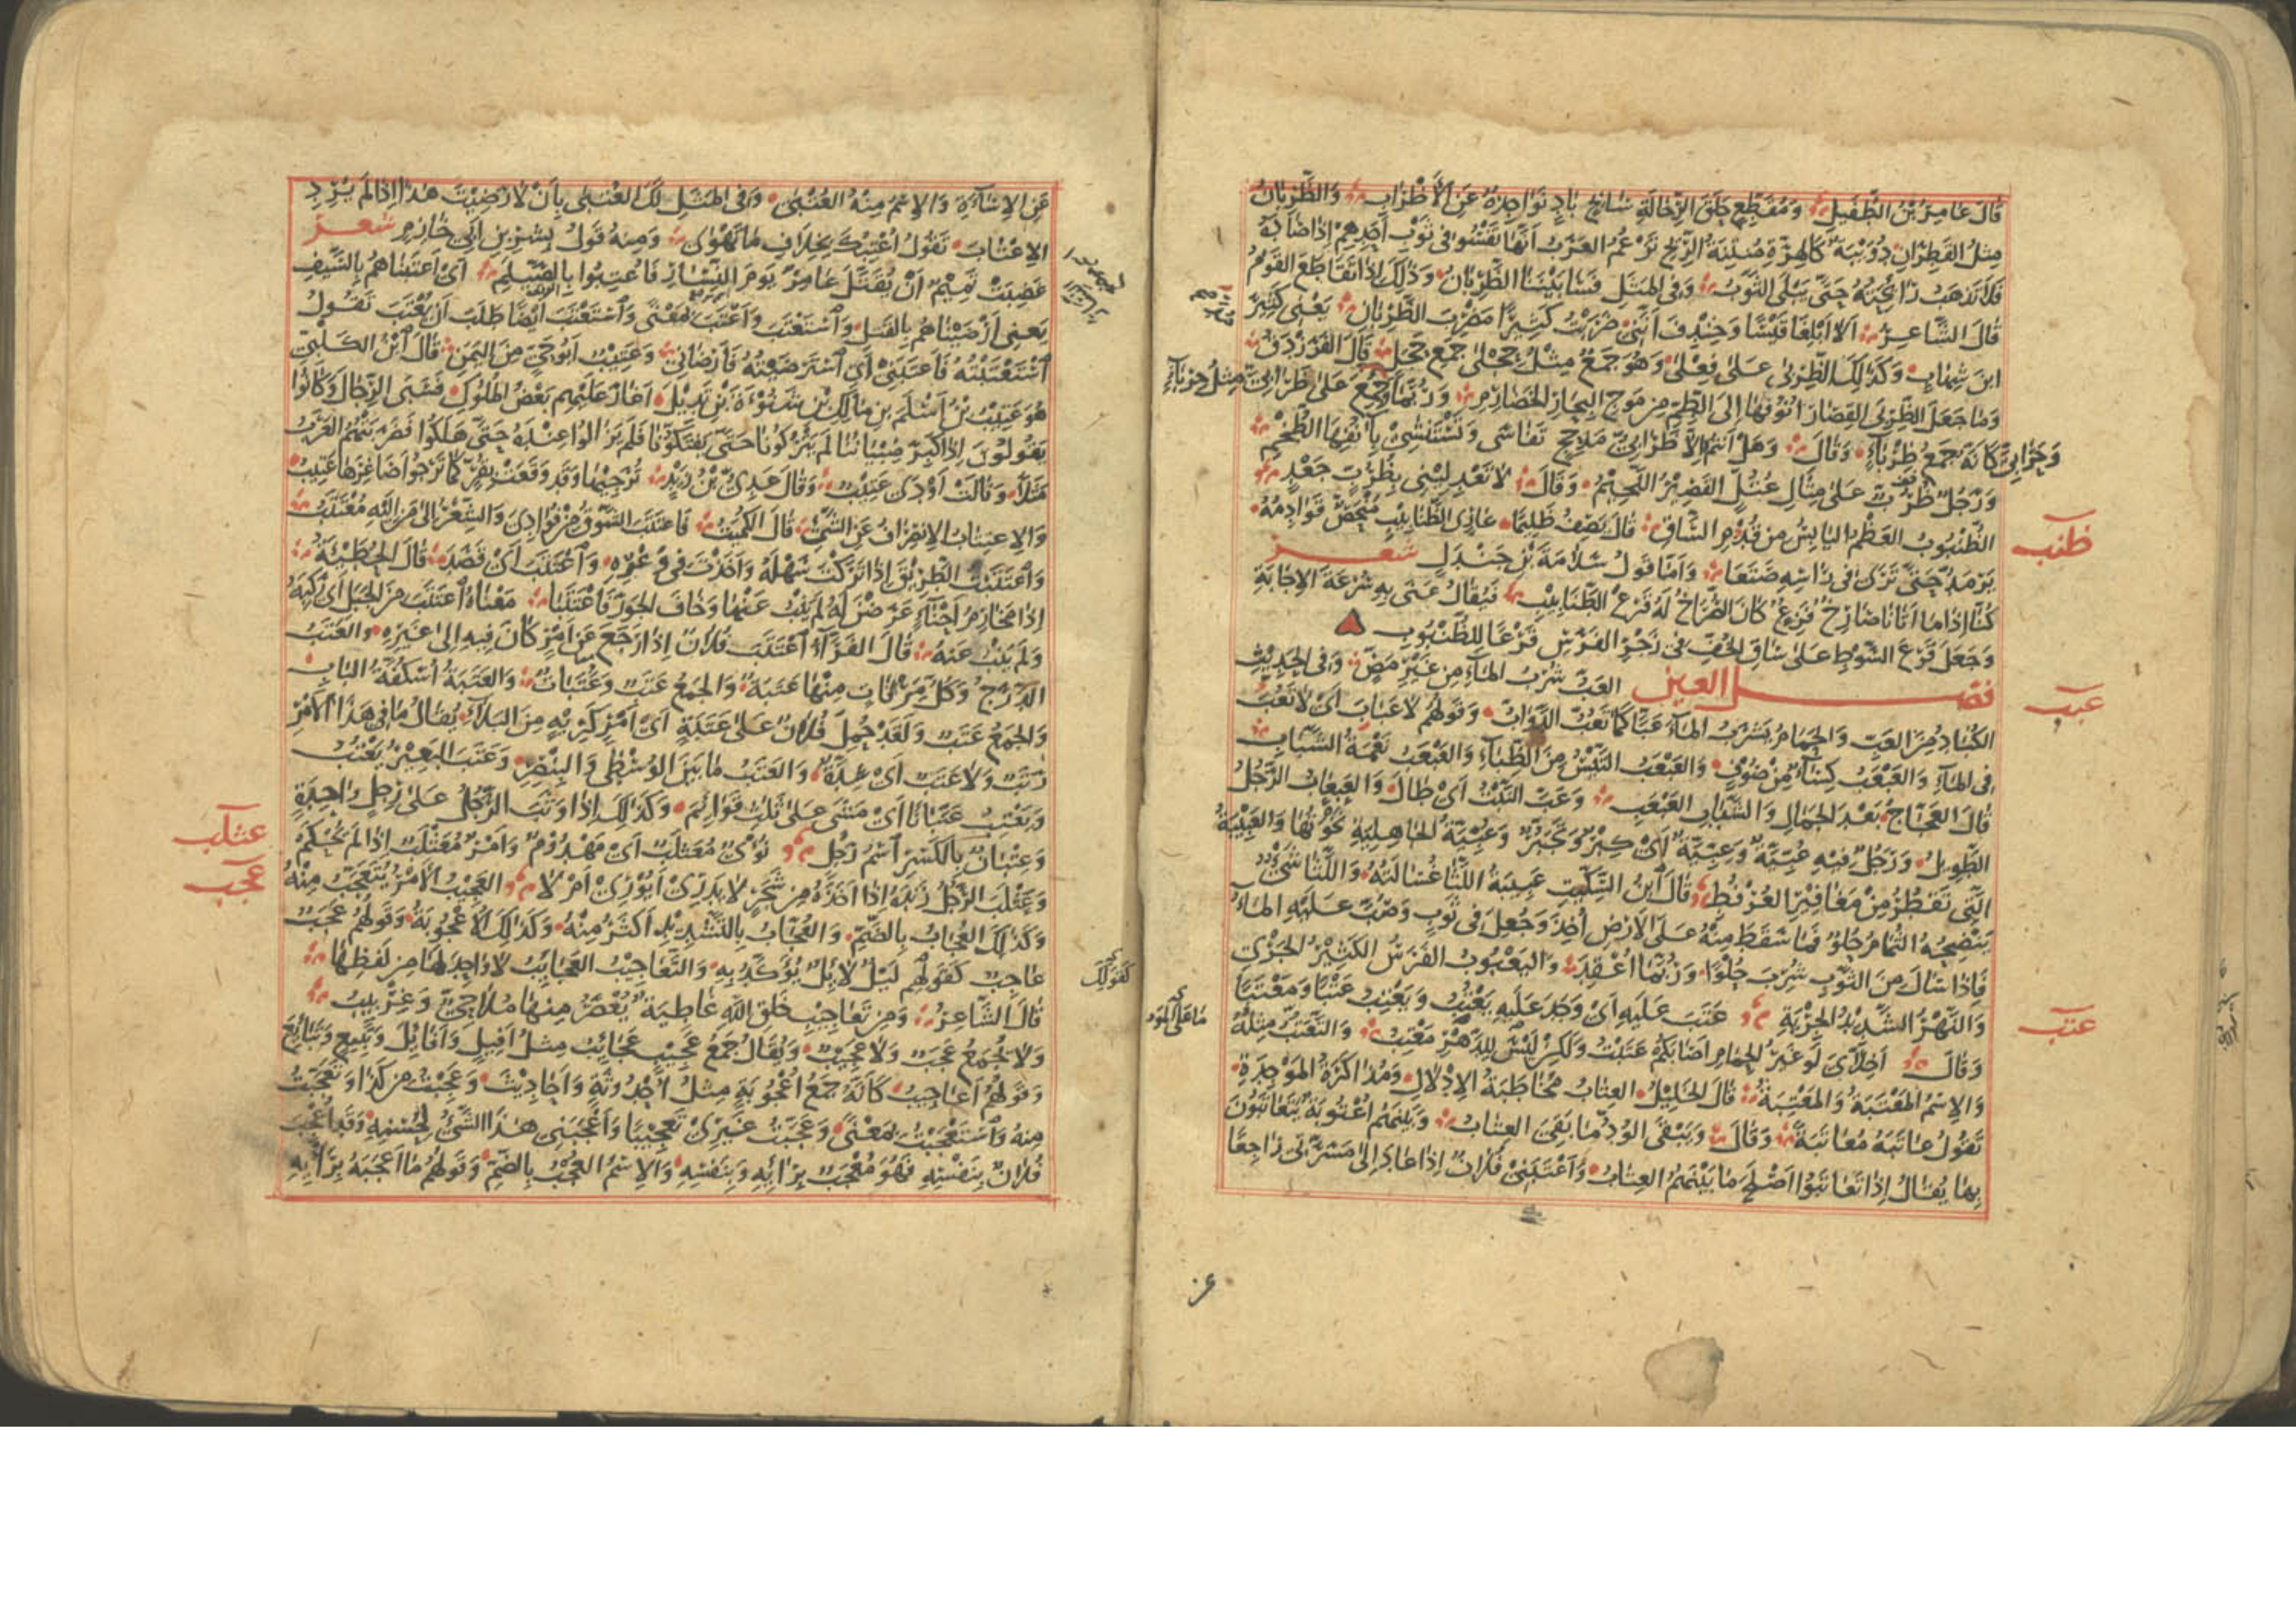 قَالَ عَامِرُ بْنُ الطُّفَيْلِ وَمُقَطِّعٍ حَلَقَ الرِّحَالَةِ سَابِحٍ بَادٍ نَوَاجِذُهُ عَنِ الْأَظْرَابِ وَالظَّرِبَانُ
مِثْلُ القَطِرَانِ دُوَيْبَّةٌ كَالْهِرَّةِ مُنْتِنَةُ الرِّيحِ تَزْعُمُ العَرَبُ أَنَّهَا تَفْسُو فِي ثَوْبِ أَحَدِهِمْ إِذَا صَادَهَا
فَلَا تَذْهَبُ رَائِحَتُهُ حَتَّى يَبْلَى الثَّوْبُ وَفِي الْمَثَلِ فَسَا بَيْنَنَا الظَّرِبَانُ وَذَلِكَ إِذَا تَقَاطَعَ القَوْمُ
قَالَ الشَّاعِرُ أَلَا أَبْلِغَا قَيْسًا وَخِنْدِفَ أَنَّنِي ضَرَبْتُ كَثِيرًا مَضْرِبَ الظَّرِبَانِ يَعْنِي كَثِيرَ
ابْنَ شِهَابٍ وَكَذَلِكَ الظِّرْبَى عَلَى فِعْلَى وَهُوَ جَمْعٌ مِثْلُ حِجْلَى جَمْعِ حَجَلٍ قَالَ الفَرَزْدَقُ
وَمَا جَعَلَ الظِّرْبَى القِصَارَ أُنُوفُهَا إِلَى الطِّمِّ مِنْ مَوْجِ البِحَارِ الخَضَارِمِ وَرُبَّمَا جُمِعَ عَلَى ظَرَابِيَّ مِثْلُ حِرْبَاءٍ
وَحَرَابِيَّ كَأَنَّهُ جَمْعُ ظِرْبَاءٍ وَقَالَ وَهَلْ أَنْتُمُ إِلَّا ظَرَابِيُّ مَذْحِجٍ تَفَاسَى وَتَسْتَنْشِي بِآنُفِهَا الطُّخْمِ
وَرَجُلٌ ظُرُبٌّ عَلَى مِثَالِ عُتُلٍّ القَصِيرُ اللَّحِيمُ وَقَالَ لَا تَعْدِلِينِي بِظُرُبٍّ جَعْدٍ
ظنب
الظُّنْبُوبُ العَظْمُ اليَابِسُ مِنْ قُدُمِ السَّاقِ قَالَ يَصِفُ ظَلِيمًا عَارِي الظَّنَابِيبِ مُنْحَصٌّ قَوَادِمُهُ
يَرْمَدُّ حَتَّى تَرَى فِي رَأْسِهِ صَنَعَا وَأَمَّا قَوْلُ سَلَامَةَ بْنِ جَنْدَلٍ شعر
كُنَّا إِذَا مَا أَتَانَا صَارِخٌ فَزِعٌ كَانَ الصُّرَاخُ لَهُ قَرْعَ الظَّنَابِيبِ فَيُقَالُ عَنَى بِهِ سُرْعَةَ الإِجَابَةِ
وَجَعَلَ قَرْعَ السَّوْطِ عَلَى سَاقِ الخُفِّ فِي زَجْرِ الفَرَسِ قَرْعًا لِلظُّنْبُوبِ
عبب
فصل العين العَبُّ شُرْبُ المَاءِ مِنْ غَيْرِ مَصٍّ وَفِي الحَدِيثِ
الكُبَادُ مِنَ العَبِّ وَالحَمَامُ يَشْرَبُ المَاءَ عَبًّا كَمَا تَعُبُّ الدَّوَابُّ وَقَوْلُهُمْ لَا عَبَابِ أَيْ لَا تَعُبُّ
فِي المَاءِ وَالعَبْعَبُ كِسَاءٌ مِنْ صُوفٍ وَالعَبْعَبُ التَّيْسُ مِنَ الظِّبَاءِ وَالعَبْعَبُ نَعْمَةُ الشَّبَابِ
قَالَ العَجَّاجُ بَعْدَ الجَمَالِ وَالشَّبَابِ العَبْعَبِ وَعَبَّ النَّبْتُ أَيْ طَالَ وَالعَبْعَابُ الرَّجُلُ
الطَّوِيلُ وَرَجُلٌ فِيهِ عُبِّيَّةٌ وَعِبِّيَّةٌ أَيْ كِبْرٌ وَتَجَبُّرٌ وَعُبِّيَّةُ الجَاهِلِيَّةِ نَخْوَتُهَا وَالعَبِيبَةُ
الَّتِي تَقْطُرُ مِنْ مَغَافِيرِ العُرْفُطِ وَقَالَ ابْنُ السِّكِّيتِ عَبِيبَةُ اللَّثَا غُسَالَتُهُ وَاللَّثَا شَيْءٌ
يَنْضَحُهُ الثُّمَامُ حُلْوٌ فَمَا سَقَطَ مِنْهُ عَلَى الْأَرْضِ أُخِذَ وَجُعِلَ فِي ثَوْبٍ وَصُبَّ عَلَيْهِ المَاءُ
فَإِذَا سَالَ مِنَ الثَّوْبِ شُرِبَ حُلْوًا وَرُبَّمَا أُعْقِدَ وَاليَعْبُوبُ الفَرَسُ الكَثِيرُ الجَرْيِ
عتب
وَالنَّهْرُ الشَّدِيدُ الجِرْيَةِ عَتَبَ عَلَيْهِ أَيْ وَجَدَ عَلَيْهِ يَعْتُبُ وَيَعْتِبُ عَتْبًا وَمَعْتَبًا
وَقَالَ أَخِلَّايَ لَوْ غَيْرُ الحِمَامِ أَصَابَكُمْ عَتَبْتُ وَلَكِنْ لَيْسَ لِلدَّهْرِ مَعْتَبُ وَالتَّعَتُّبُ مِثْلُهُ
وَالِاسْمُ المَعْتَبَةُ وَالمَعْتِبَةُ قَالَ الخَلِيلُ العِتَابُ مُخَاطَبَةُ الإِدْلَالِ وَمُذَاكَرَةُ المَوْجِدَةِ
تَقُولُ عَاتَبَهُ مُعَاتَبَةً وَقَالَ وَيَبْقَى الوُدُّ مَا بَقِيَ العِتَابُ وَبَيْنَهُمْ أُعْتُوبَةٌ يَتَعَاتَبُونَ
بِهَا يُقَالُ إِذَا تَعَاتَبُوا أَصْلَحَ مَا بَيْنَهُمُ العِتَابُ وَأَعْتَبَنِي فُلَانٌ إِذَا عَادَ إِلَى مَسَرَّتِي رَاجِعًا
عز
عَنِ الإِسَاءَةِ وَالِاسْمُ مِنْهُ العُتْبَى وَفِي المَثَلِ لَكَ العُتْبَى بِأَنْ لَا رَضِيتَ هَذَا إِذَا لَمْ يُرِدِ
الإِعْتَابَ تَقُولُ أُعْتِبُكَ بِخِلَافِ مَا تَهْوَى وَمِنْهُ قَوْلُ بِشْرِ بْنِ أَبِي خَازِمٍ شعر
غَضِبَتْ تَمِيمٌ أَنْ يُقَتَّلَ عَامِرٌ يَوْمَ النِّسَارِ فَأُعْتِبُوا بِالصَّيْلَمِ أَيْ أَعْتَبْنَاهُمْ بِالسَّيْفِ
يَعْنِي أَرْضَيْنَاهُمْ بِالقَتْلِ وَاسْتَعْتَبَ وَأَعْتَبَ بِمَعْنًى وَاسْتَعْتَبَ أَيْضًا طَلَبَ أَنْ يُعْتَبَ تَقُولُ
اسْتَعْتَبْتُهُ فَأَعْتَبَنِي أَيِ اسْتَرْضَيْتُهُ فَأَرْضَانِي وَعَتِيبٌ أَبُو حَيٍّ مِنَ اليَمَنِ قَالَ ابْنُ الكَلْبِيِّ
هُوَ عَتِيبُ بْنُ أَسْلَمَ بْنِ مَالِكِ بْنِ شَنُوءَةَ بْنِ تَدِيلَ أَغَارَ عَلَيْهِمْ بَعْضُ المُلُوكِ فَسَبَى الرِّجَالَ وَكَانُوا
يَقُولُونَ إِذَا كَبِرَ صِبْيَانُنَا لَمْ يَتْرُكُونَا حَتَّى يَفْتَكُّونَا فَلَمْ يَزَالُوا عِنْدَهُ حَتَّى هَلَكُوا فَضَرَبَتْهُمُ العَرَبُ
مَثَلًا وَقَالَتْ أَوْدَى عَتِيبٌ وَقَالَ عَدِيُّ بْنُ زَيْدٍ تُرَجِّيهَا وَقَدْ وَقَعَتْ بِقُرٍّ كَمَا تَرْجُو أَصَاغِرَهَا عَتِيبُ
وَالِاعْتِتَابُ الِانْصِرَافُ عَنِ الشَّيْءِ قَالَ الكُمَيْتُ فَاعْتَتَبَ الشَّوْقُ مِنْ فُؤَادِيَ وَالشِّعْرُ إِلَى مَنْ إِلَيْهِ مُعْتَتَبُ
وَاعْتَتَبْتُ الطَّرِيقَ إِذَا تَرَكْتَ سَهْلَهُ وَأَخَذْتَ فِي وَعْرِهِ وَاعْتَتَبَ أَيْ قَصَدَ قَالَ الحُطَيْئَةُ
إِذَا مَخَارِمُ أَحْنَاءٍ عَرَضْنَ لَهُ لَمْ يَنْبُ عَنْهَا وَخَافَ الجَوْرَ فَاعْتَتَبَا مَعْنَاهُ اعْتَتَبَ مِنَ الجَبَلِ أَيْ رَكِبَهُ
وَلَمْ يَنْبُ عَنْهُ قَالَ الفَرَّاءُ اعْتَتَبَ فُلَانٌ إِذَا رَجَعَ عَنْ أَمْرٍ كَانَ فِيهِ إِلَى غَيْرِهِ وَالعَتَبُ
الدَّرَجُ وَكُلُّ مَرْقَاةٍ مِنْهَا عَتَبَةٌ وَالجَمْعُ عَتَبٌ وَعَتَبَاتٌ وَالعَتَبَةُ أُسْكُفَّةُ البَابِ
وَالجَمْعُ عَتَبٌ وَلَقَدْ حُمِلَ فُلَانٌ عَلَى عَتَبَةٍ أَيْ أَمْرٍ كَرِيهٍ مِنَ البَلَاءِ يُقَالُ مَا فِي هَذَا الْأَمْرِ
رَتَبٌ وَلَا عَتَبٌ أَيْ شِدَّةٌ وَالعَتَبُ مَا بَيْنَ الوُسْطَى وَالبِنْصِرِ وَعَتَبَ البَعِيرُ يَعْتُبُ
وَيَعْتِبُ عَتَبَانًا أَيْ مَشَى عَلَى ثَلَاثِ قَوَائِمَ وَكَذَلِكَ إِذَا وَثَبَ الرَّجُلُ عَلَى رِجْلٍ وَاحِدَةٍ
عثلب
وَعِتْبَانُ بِالكَسْرِ اسْمُ رَجُلٍ نُؤْيٌ مُعَثْلَبٌ أَيْ مَهْدُومٌ وَأَمْرٌ مُعَثْلَبٌ إِذَا لَمْ يُحْكَمْ
عجب
وَعَثْلَبَ الرَّجُلُ زَنْدَهُ إِذَا أَخَذَهُ مِنْ شَجَرٍ لَا يَدْرِي أَيُورِي أَمْ لَا العَجِيبُ الْأَمْرُ يُتَعَجَّبُ مِنْهُ
وَكَذَلِكَ العُجَابُ بِالضَّمِّ وَالعُجَّابُ بِالتَّشْدِيدِ أَكْثَرُ مِنْهُ وَكَذَلِكَ الْأُعْجُوبَةُ وَقَوْلُهُمْ عَجَبٌ
عَاجِبٌ كَقَوْلِهِمْ لَيْلٌ لَائِلٌ يُؤَكَّدُ بِهِ وَالتَّعَاجِيبُ العَجَائِبُ لَا وَاحِدَ لَهَا مِنْ لَفْظِهَا
كقولك
قَالَ الشَّاعِرُ وَمِنْ تَعَاجِيبِ خَلْقِ اللَّهِ غَاطِيَةٌ يُعْصَرُ مِنْهَا مُلَاحِيٌّ وَغِرْبِيبُ
وَلَا يُجْمَعُ عَجَبٌ وَلَا عَجِيبٌ وَيُقَالُ جَمْعُ عَجِيبٍ عَجَائِبُ مِثْلُ أَفِيلٍ وَأَفَائِلَ وَتَبِيعٍ وَتَبَائِعَ
وَقَوْلُهُمْ أَعَاجِيبُ كَأَنَّهُ جَمْعُ أُعْجُوبَةٍ مِثْلُ أُحْدُوثَةٍ وَأَحَادِيثَ وَعَجِبْتُ مِنْ كَذَا وَتَعَجَّبْتُ
مِنْهُ وَاسْتَعْجَبْتُ بِمَعْنًى وَعَجَّبْتُ غَيْرِي تَعْجِيبًا وَأَعْجَبَنِي هَذَا الشَّيْءُ لِحُسْنِهِ وَقَدْ أُعْجِبَ
فُلَانٌ بِنَفْسِهِ فَهُوَ مُعْجَبٌ بِرَأْيِهِ وَبِنَفْسِهِ وَالِاسْمُ العُجْبُ بِالضَّمِّ وَقَوْلُهُمْ مَا أَعْجَبَهُ بِرَأْيِهِ